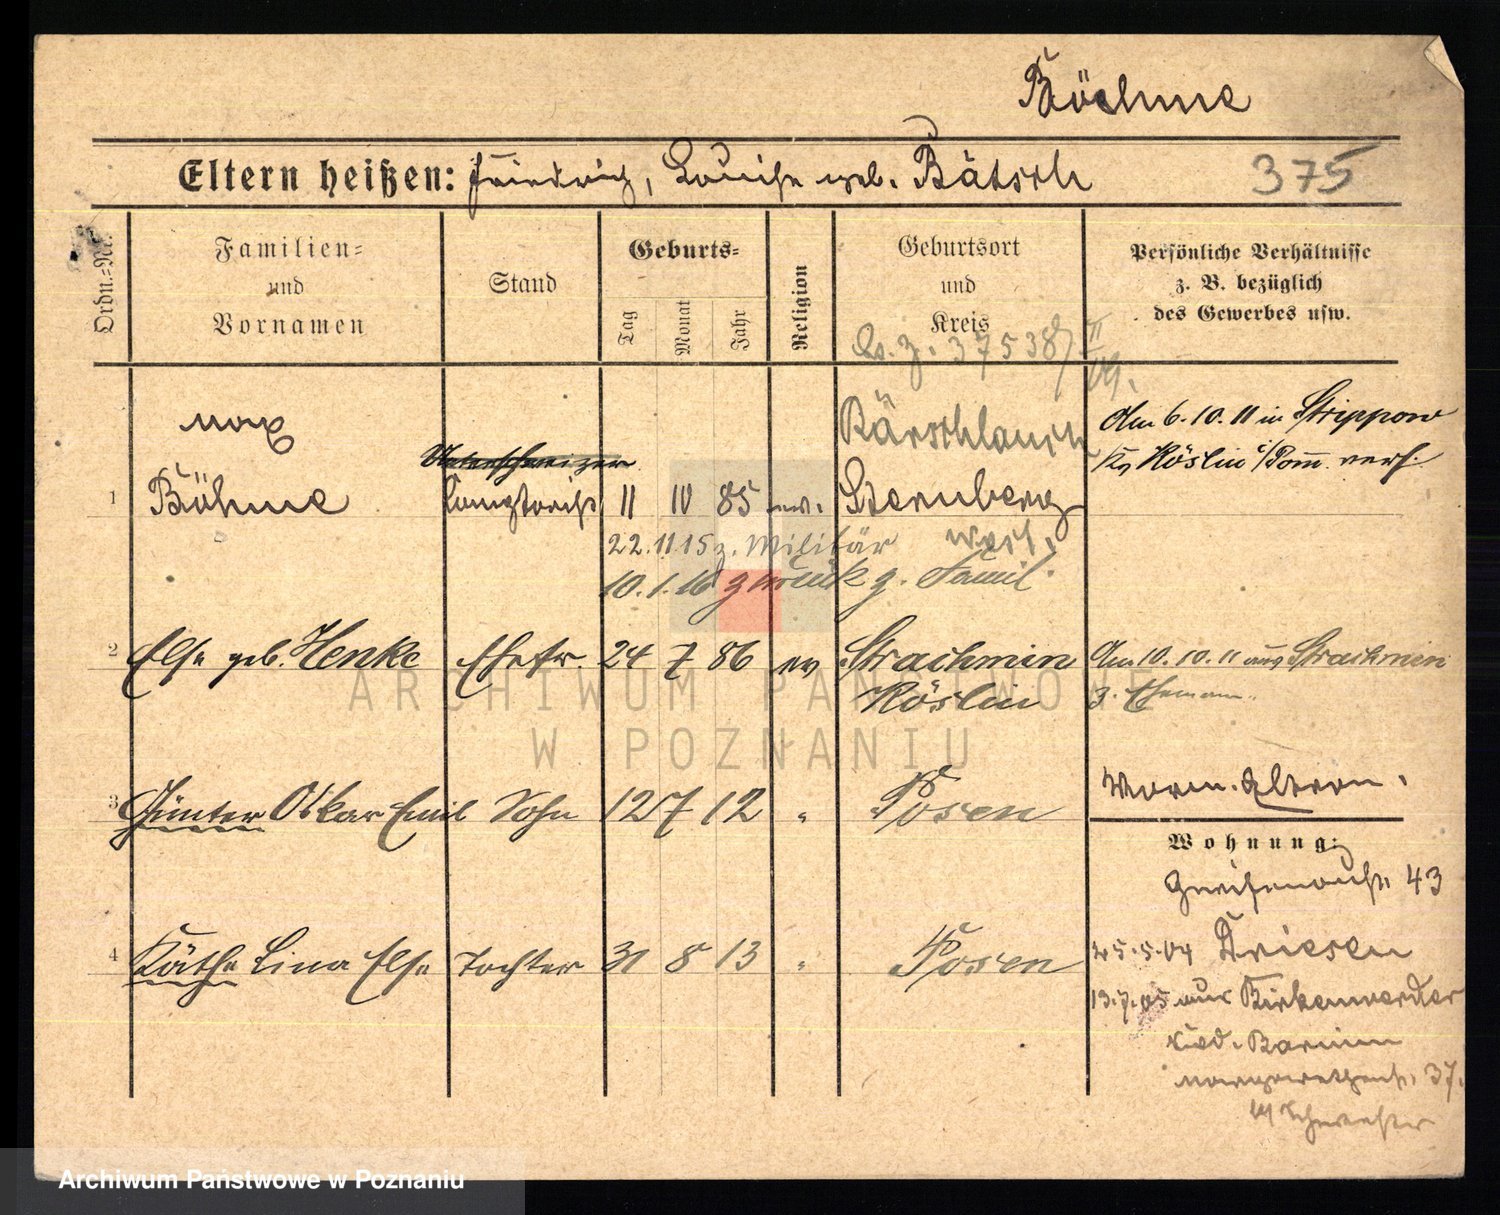 Böhme
Eltern heißen: Friedrich, Louise geb. Bätsch
375
Ordn.-Nr.
Familien- und Vornamen
Stand
Geburts-
Tag
Monat
Jahr
Religion
Geburtsort und Kreis
Persönliche Verhältnisse z. B. bezüglich des Gewerbes usw.
37538
Max
Unterschweizer
Am 6.10.11 in Strippow
Kr Köslin i/Pom. verh.
1 Böhme 11 10 85 ev. Sternberg
22.11.15 z. Militär
10.1.16 zurück z. Famil.
2 Else geb. Henke Ehefr. 24 7 86 ev Strachmin
Köslin
Am 10.10.11 aus Strachmin
z. Ehemann.
3 Günter Oskar Emil Sohn 12 7 12 " Posen
Wohnung:
43
4 Käthe Lina Else Tochter 31 8 13 " Posen
25.5.04 Driesen
13.7.05 aus Birkenwerder
Barnim
37.
Schwester
ARCHIWUM PAŃSTWOWE
W POZNANIU
Archiwum Państwowe w Poznaniu